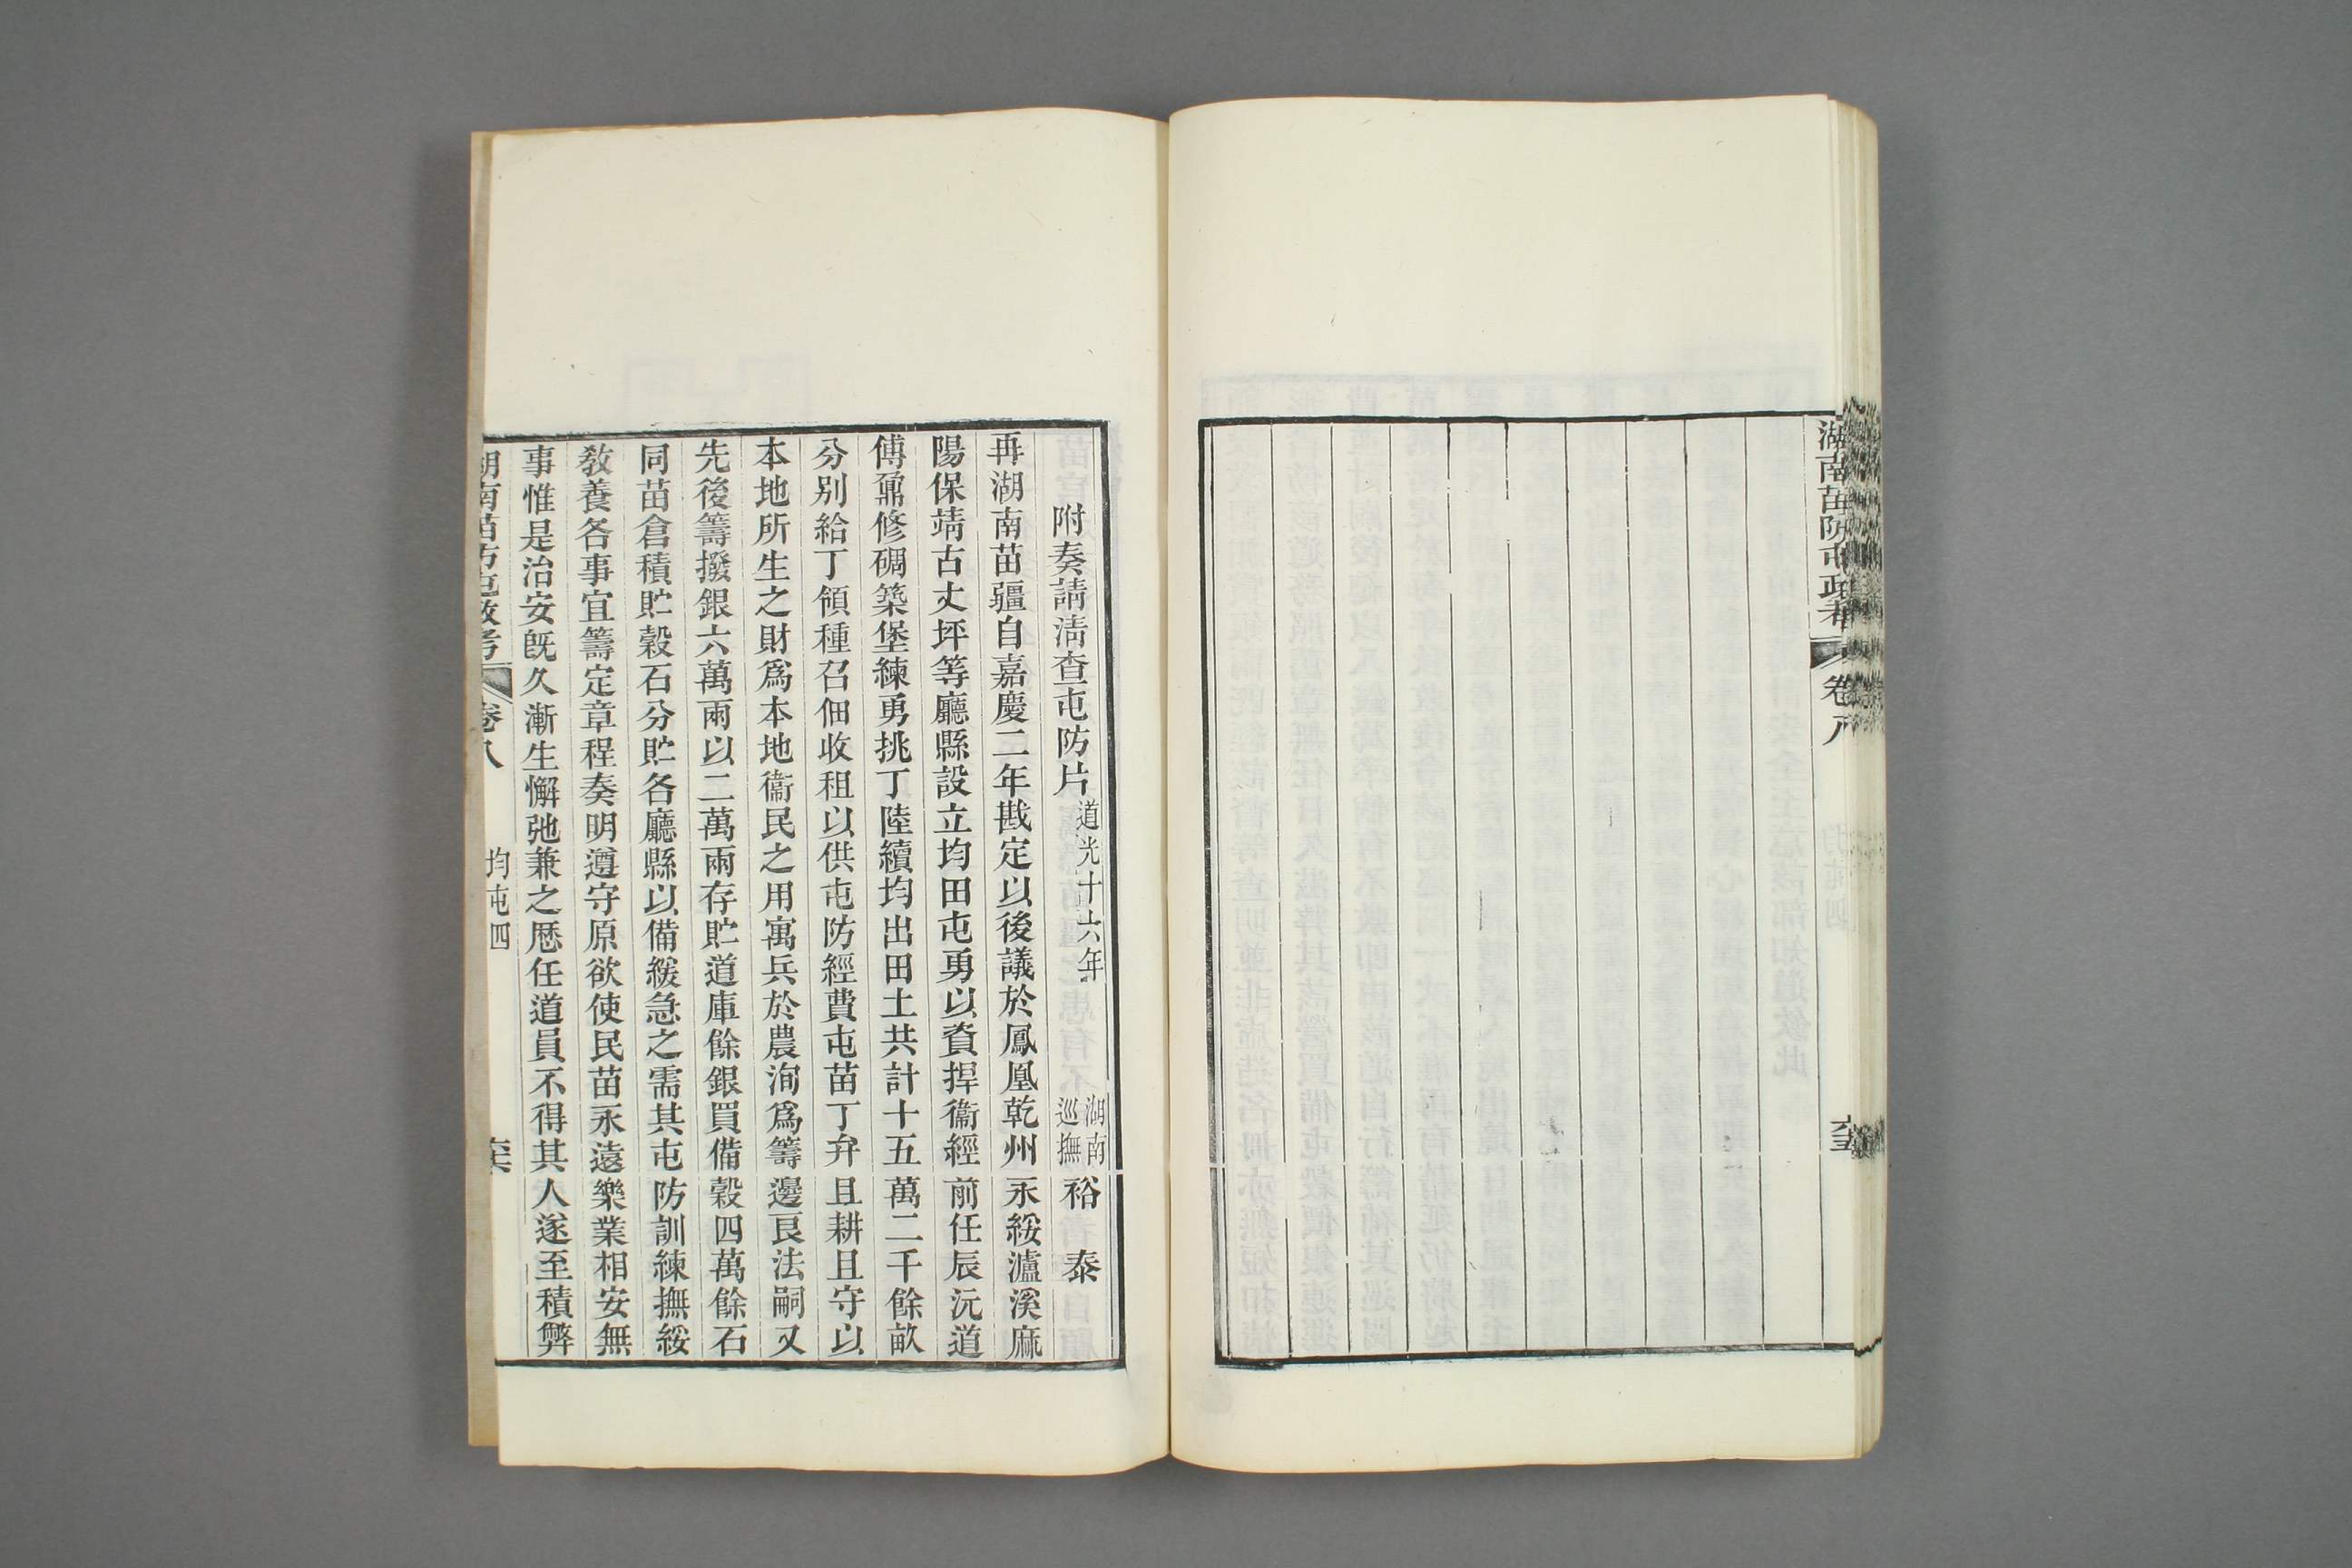 湖南苗防屯政考
卷八
附奏請清查屯防片道光十六年 湖南巡撫裕泰
再湖南苗疆自嘉慶二年戡定以後議於鳳凰乾州永綏瀘溪麻
陽保靖古丈坪等廳縣設立均田屯勇以資捍衞經前任辰沅道
傅鼐修碉築堡練勇挑丁陸續均出田土共計十五萬二千餘畝
分别給丁領種召佃收租以供屯防經費屯苗丁弁且耕且守以
本地所生之財爲本地衞民之用寓兵於農洵爲籌邊良法嗣又
先後籌撥銀六萬兩以二萬兩存貯道庫餘銀買備穀四萬餘石
同苗倉積貯穀石分貯各廳縣以備緩急之需其屯防訓練撫綏
敎養各事宜籌定章程奏明遵守原欲使民苗永遠樂業相安無
事惟是治安旣久漸生懈弛兼之歷任道員不得其人遂至積弊
湖南苗防屯政考 卷八 均屯四 六六